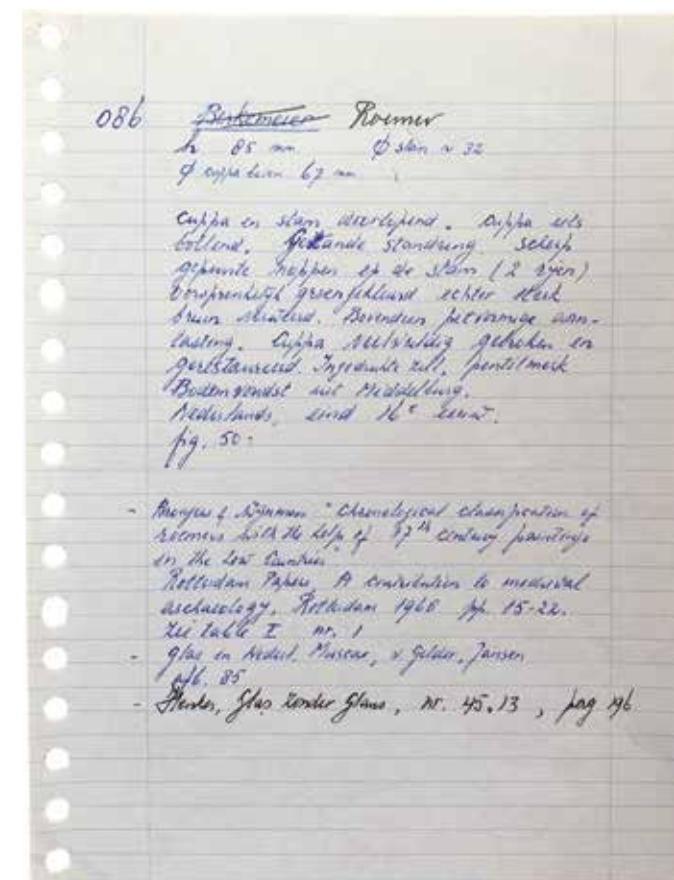 086 Berkemeier Roemer
h 85 mm Ø stam ~ 32
Ø cuppa boven 67 mm
Cuppa en stam doorlopend. Cuppa iets
bollend. Getande standring. Scherp
gepunte noppen op de stam (2 rijen)
Oorspronkelijk groengekleurd echter sterk
bruin verkleurd. Bovendien putvormige aan-
tasting. Cuppa veelvuldig gebroken en
gerestaureerd. Ingedrukte ziel, pontilmerk
Bodemvondst uit Middelburg.
Nederlands, eind 16e eeuw.
fig. 50.
- Brongers & Wijnman "Chronological classification of
roemers with the help of 17th century paintings
in the Low Countries"
Rotterdam Papers, A contribution to medieval
archaeology, Rotterdam 1968 pp. 15-22.
Zie table I nr. 1
- glas in Nederl. Musea, v Gelder, Jansen
afb. 85
- Henkes, Glas zonder Glans, nr. 45.13, pag 196